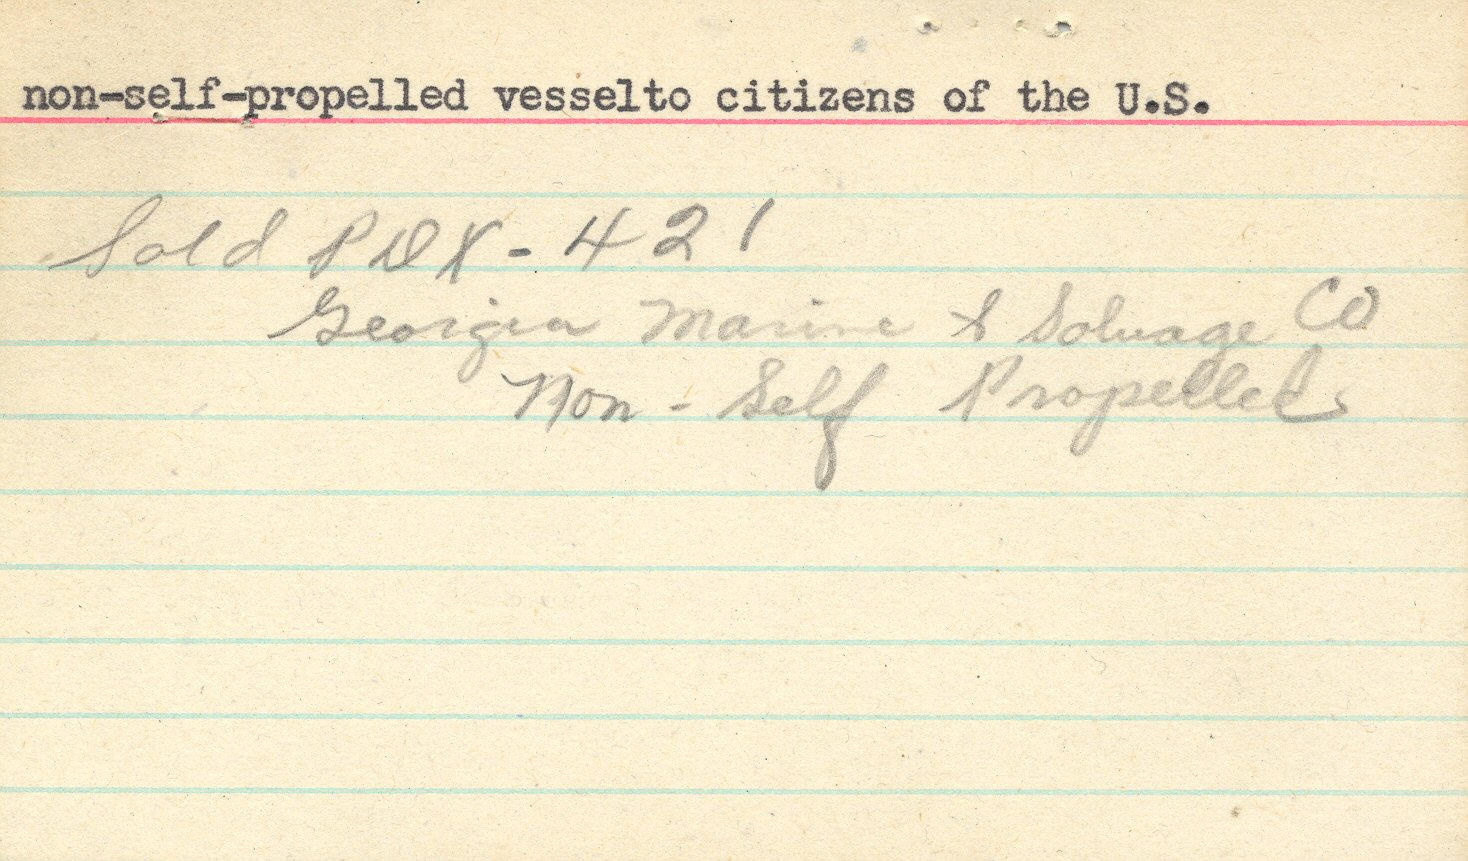 non-self-propelled vesselto citizens of the U.S.
Sold PDX-421
Georgia Marine & Solvage Co
Non-Self Propelled